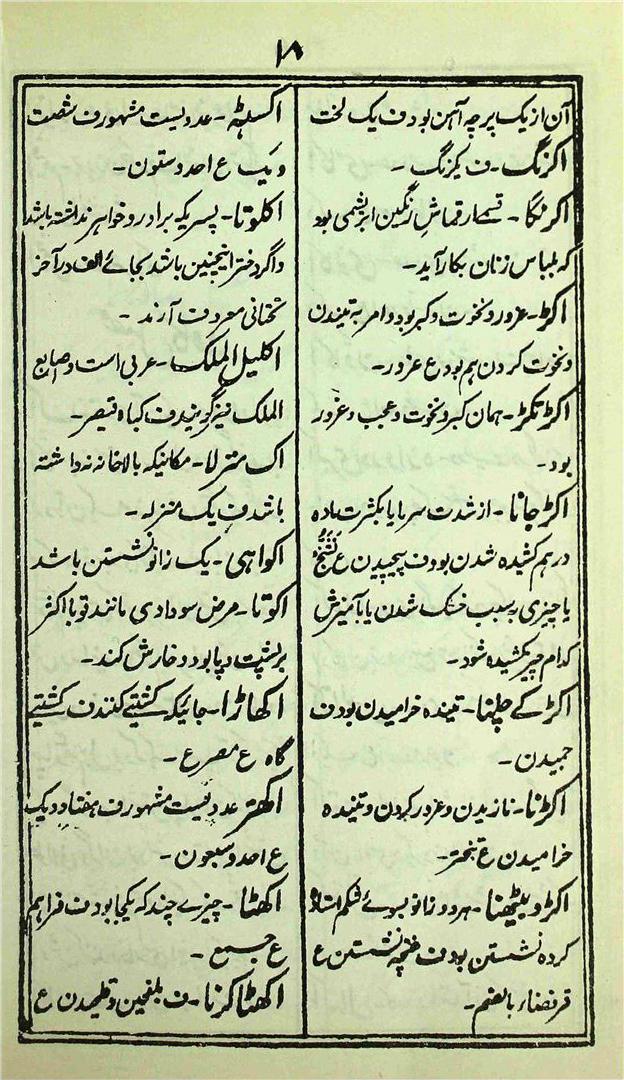 ۱۸
آن از یک پرچه آهن بود ف یک لخت
اکرنگ ۔ ف یکرنگ ۔
اکرنگا ۔ قسمے از قماش رنگین ابریشمی بود
که لباس زنان بکار آید ۔
اکڑ ۔ غرور و نخوت و کبر بود و امر به تنیدن
و نخوت کردن هم بود ع غرور ۔
اکڑتکڑ ۔ همان کبر و نخوت و عجب و غرور
بود ۔
اکڑجانا ۔ از شدت سرما یا بکثرت ماده
درهم کشیده شدن بود ف پیچیدن ع تشنج
یا چیزی بسبب خشک شدن یا بآمیزش
کدام چیز کشیده شود ۔
اکڑکے چلنا ۔ تنیده خرامیدن بود ف
چمیدن ۔
اکڑنا ۔ نازیدن و غرور کردن و تنیده
خرامیدن ع تبختر ۔
اکڑو بیٹھنا ۔ هر دو زانو بسوئے شکم استاده
کرده نشستن بود ف غنچه نشستن ع
قرفصاء بالضم ۔
اکسٹہہ ۔ عددیست مشهور ف شصت
و یک ع احد و ستون ۔
اکلوتا ۔ پسریکه برادر و خواهر نداشته باشد
و اگر دختر اینچنین باشد بجائے الف در آخر
تحتانی معروف آرند ۔
اکلیل الملک ۔ عربی است و اصابع
الملک نیز گویند ف گیاه قیصر ۔
اک منزلا ۔ مکانیکه بالاخانه نداشته
باشد ف یک منزله ۔
اکواهی ۔ یک زانو نشستن باشد
اکوتا ۔ مرض سوداوی مانند قوبا اکثر
بر پشت پا بود و خارش کند ۔
اکھاڑا ۔ جائیکه کشتے کنند ف کشتے
گاه ع مصرع ۔
اکھتر عددیست مشهور ف هفتاد و یک
ع احد و سبعون ۔
اکھٹا ۔ چیزے چند که یکجا بود ف فراهم
ع جمیع ۔
اکھٹا کرنا ۔ ف بلغچین و ع